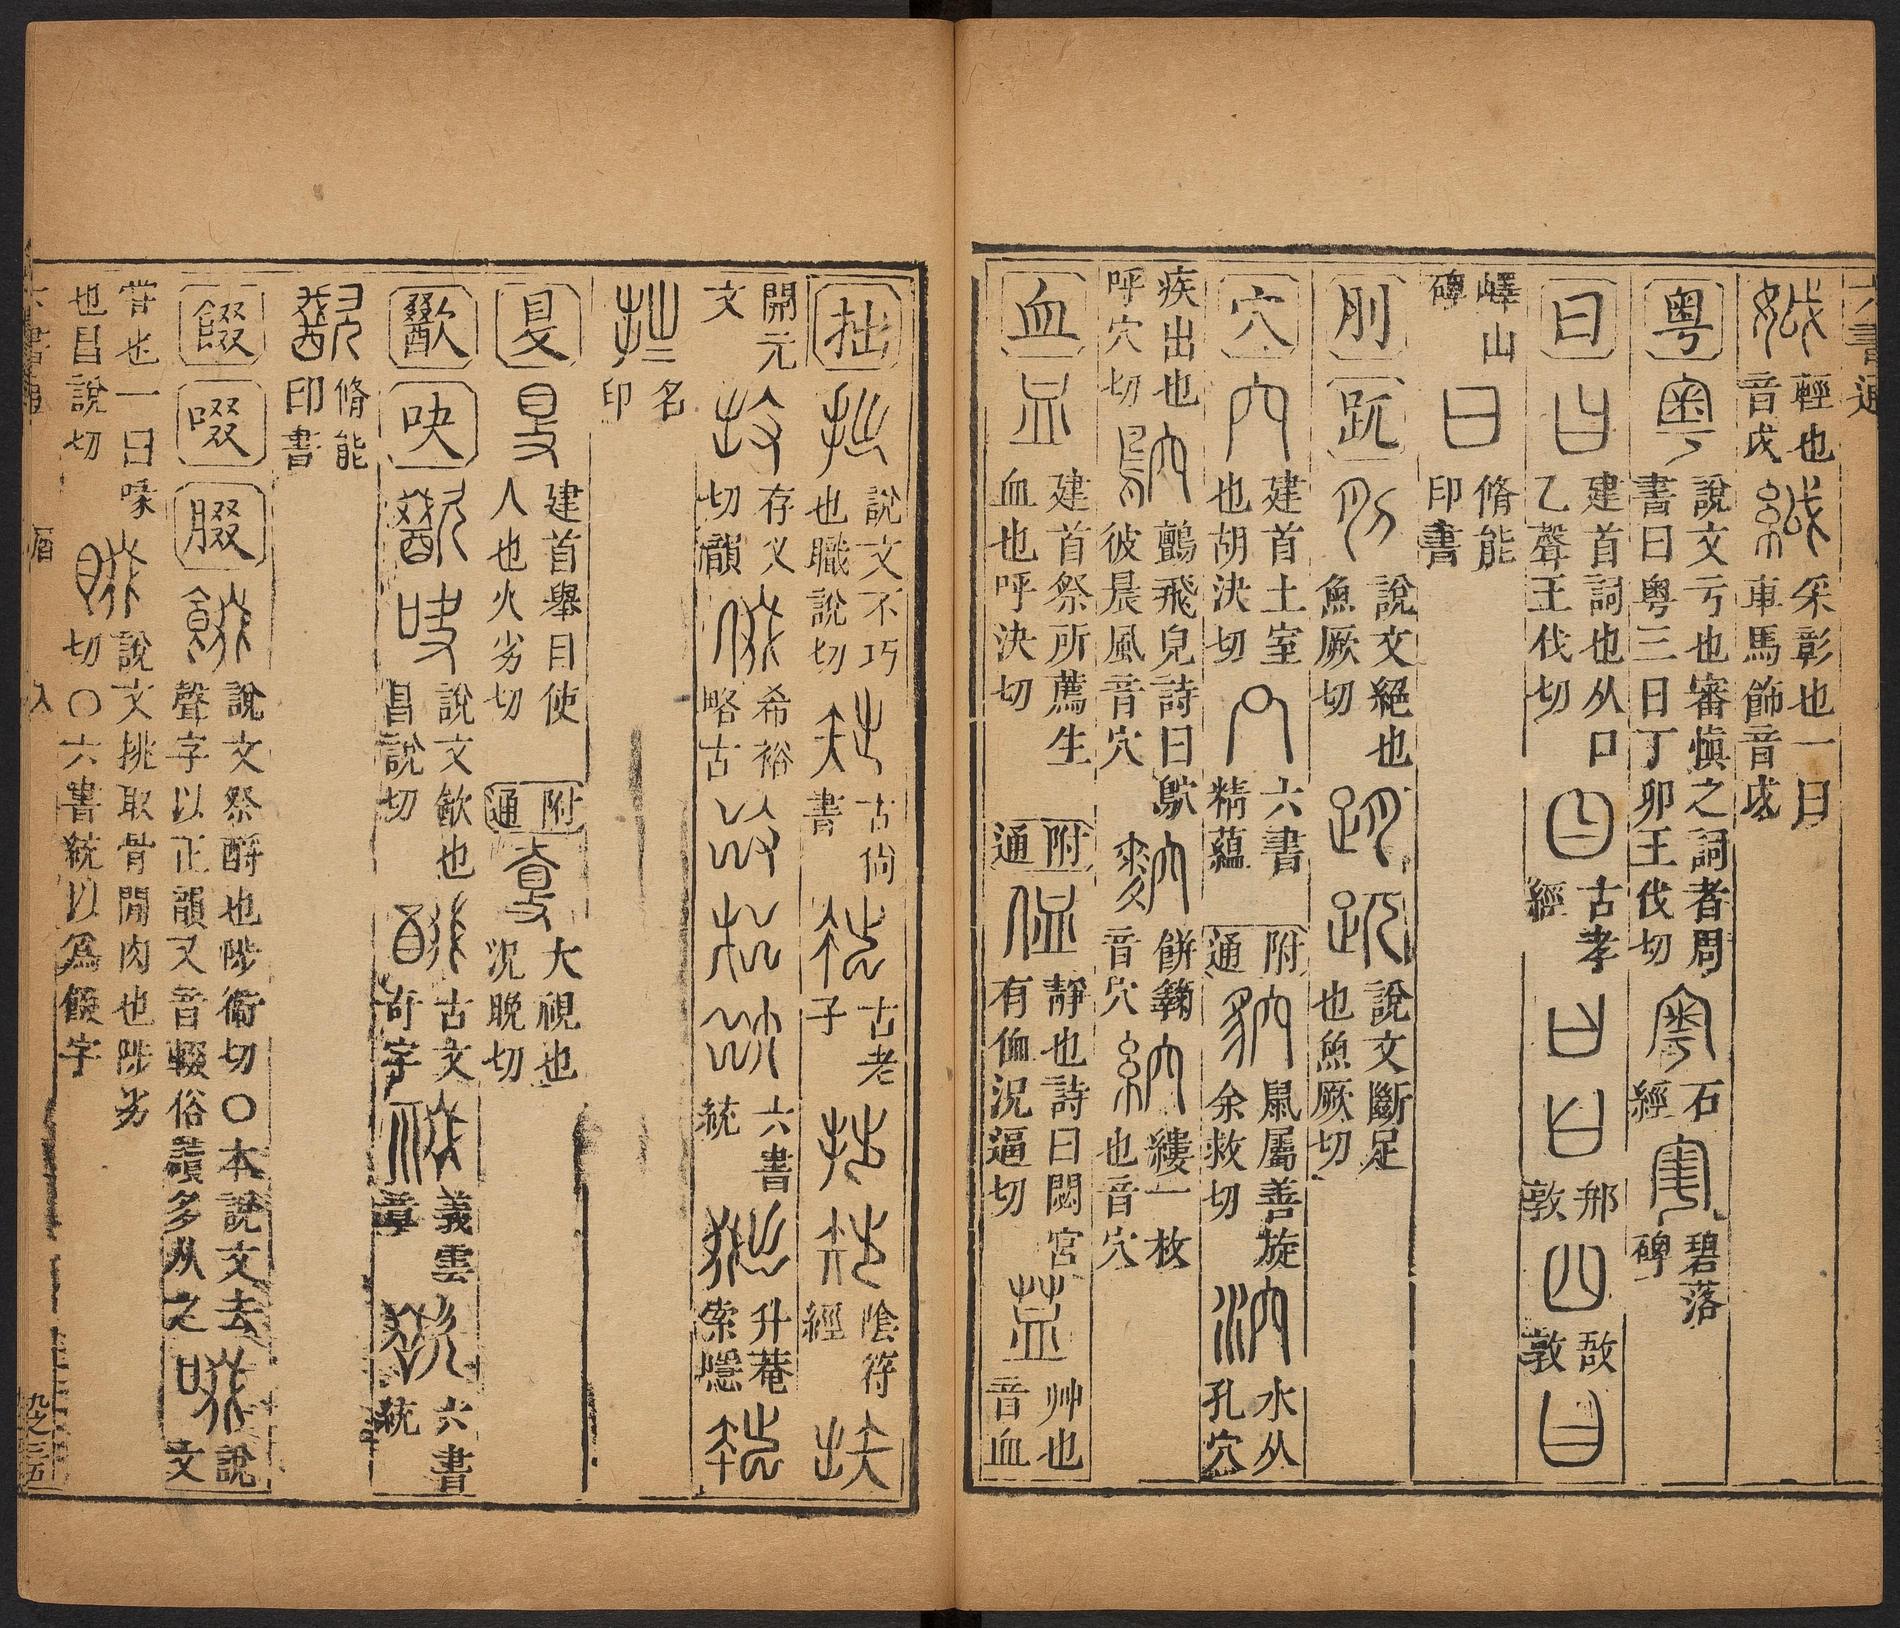 六書通
輕也音戉 采彰也一曰車馬飾音戉
粵 說文亏也審愼之詞者周書曰粵三日丁卯王伐切 石經 碧落碑
曰 建首詞也从口乙聲王伐切 古孝經 郱敦 敔敦
嶧山碑 脩能印書
刖 跀 說文絕也魚厥切 說文斷足也魚厥切
穴 建首土室也胡決切 六書精蘊 附通 鼠屬善旋余救切 水从孔穴
疾出也呼穴切 鸇飛皃詩曰鴥彼晨風音穴 餅䴬音穴 縷一枚也音穴
血 建首祭所薦生血也呼決切 附通 靜也詩曰閟宮有侐況逼切 艸也音血
拙 說文不巧也職說切 古尙書 古老子 陰符經
開元文 存乂切韻 希裕略古 六書統 升菴索隱
名印
𥄎 建首舉目使人也火劣切 附通 大視也況晚切
歠 吷 說文㱃也昌說切 古文奇字 義雲章 六書統
脩能印書
餟 啜 腏 說文祭酹也陟衛切〇本說文去聲字以正韻又音輟俗讀多从之 說文
嘗也一曰喙也昌說切 說文挑取骨閒肉也陟劣切〇六書統以爲餟字
六書通 入 九之三五